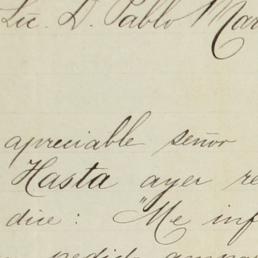 Lic. D. Pablo Mar
apreciable señor
Hasta ayer re
dice: "Me inf
pedid